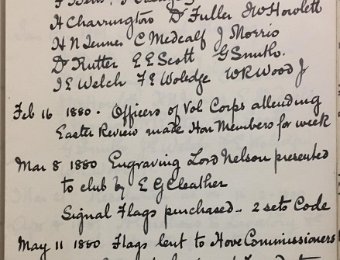 H Charrington Dr Fuller JW Howlett
H N Jenner C Medcalf J Morris
Dr Rutter E E Scott G Smith.
I E Welch F E Woledge W R Wood J
Feb 16 1880. Officers of Vol Corps attending
Easter Review made Hon Members for week
Mar 8 1880 Engraving Lord Nelson presented
to club by E G Cleather
Signal Flags purchased - 2 sets Code
May 11 1880 Flags lent to Hove Commissioners